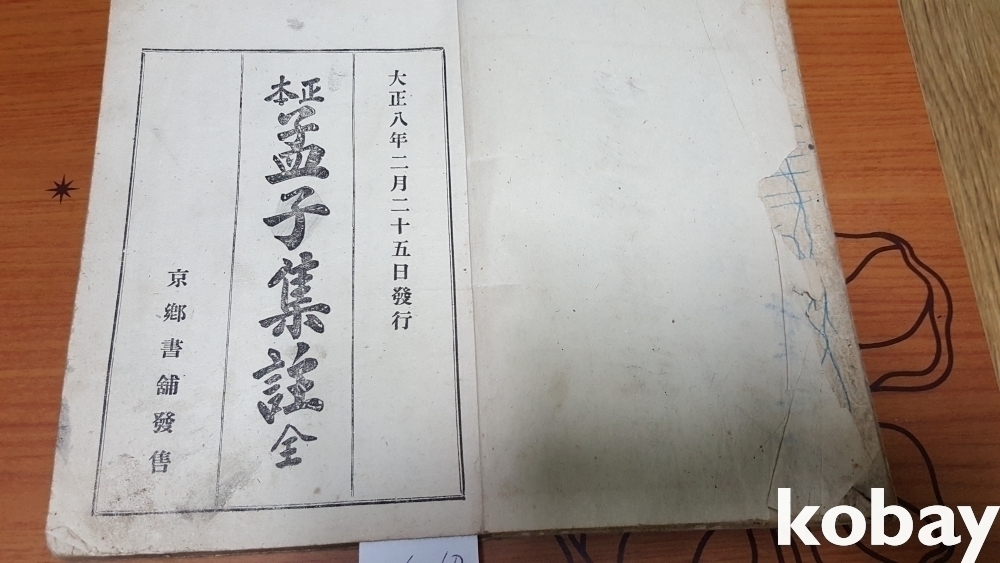 大正八年二月二十五日發行
正本 孟子集註 全
京鄉書舖發售
kobay